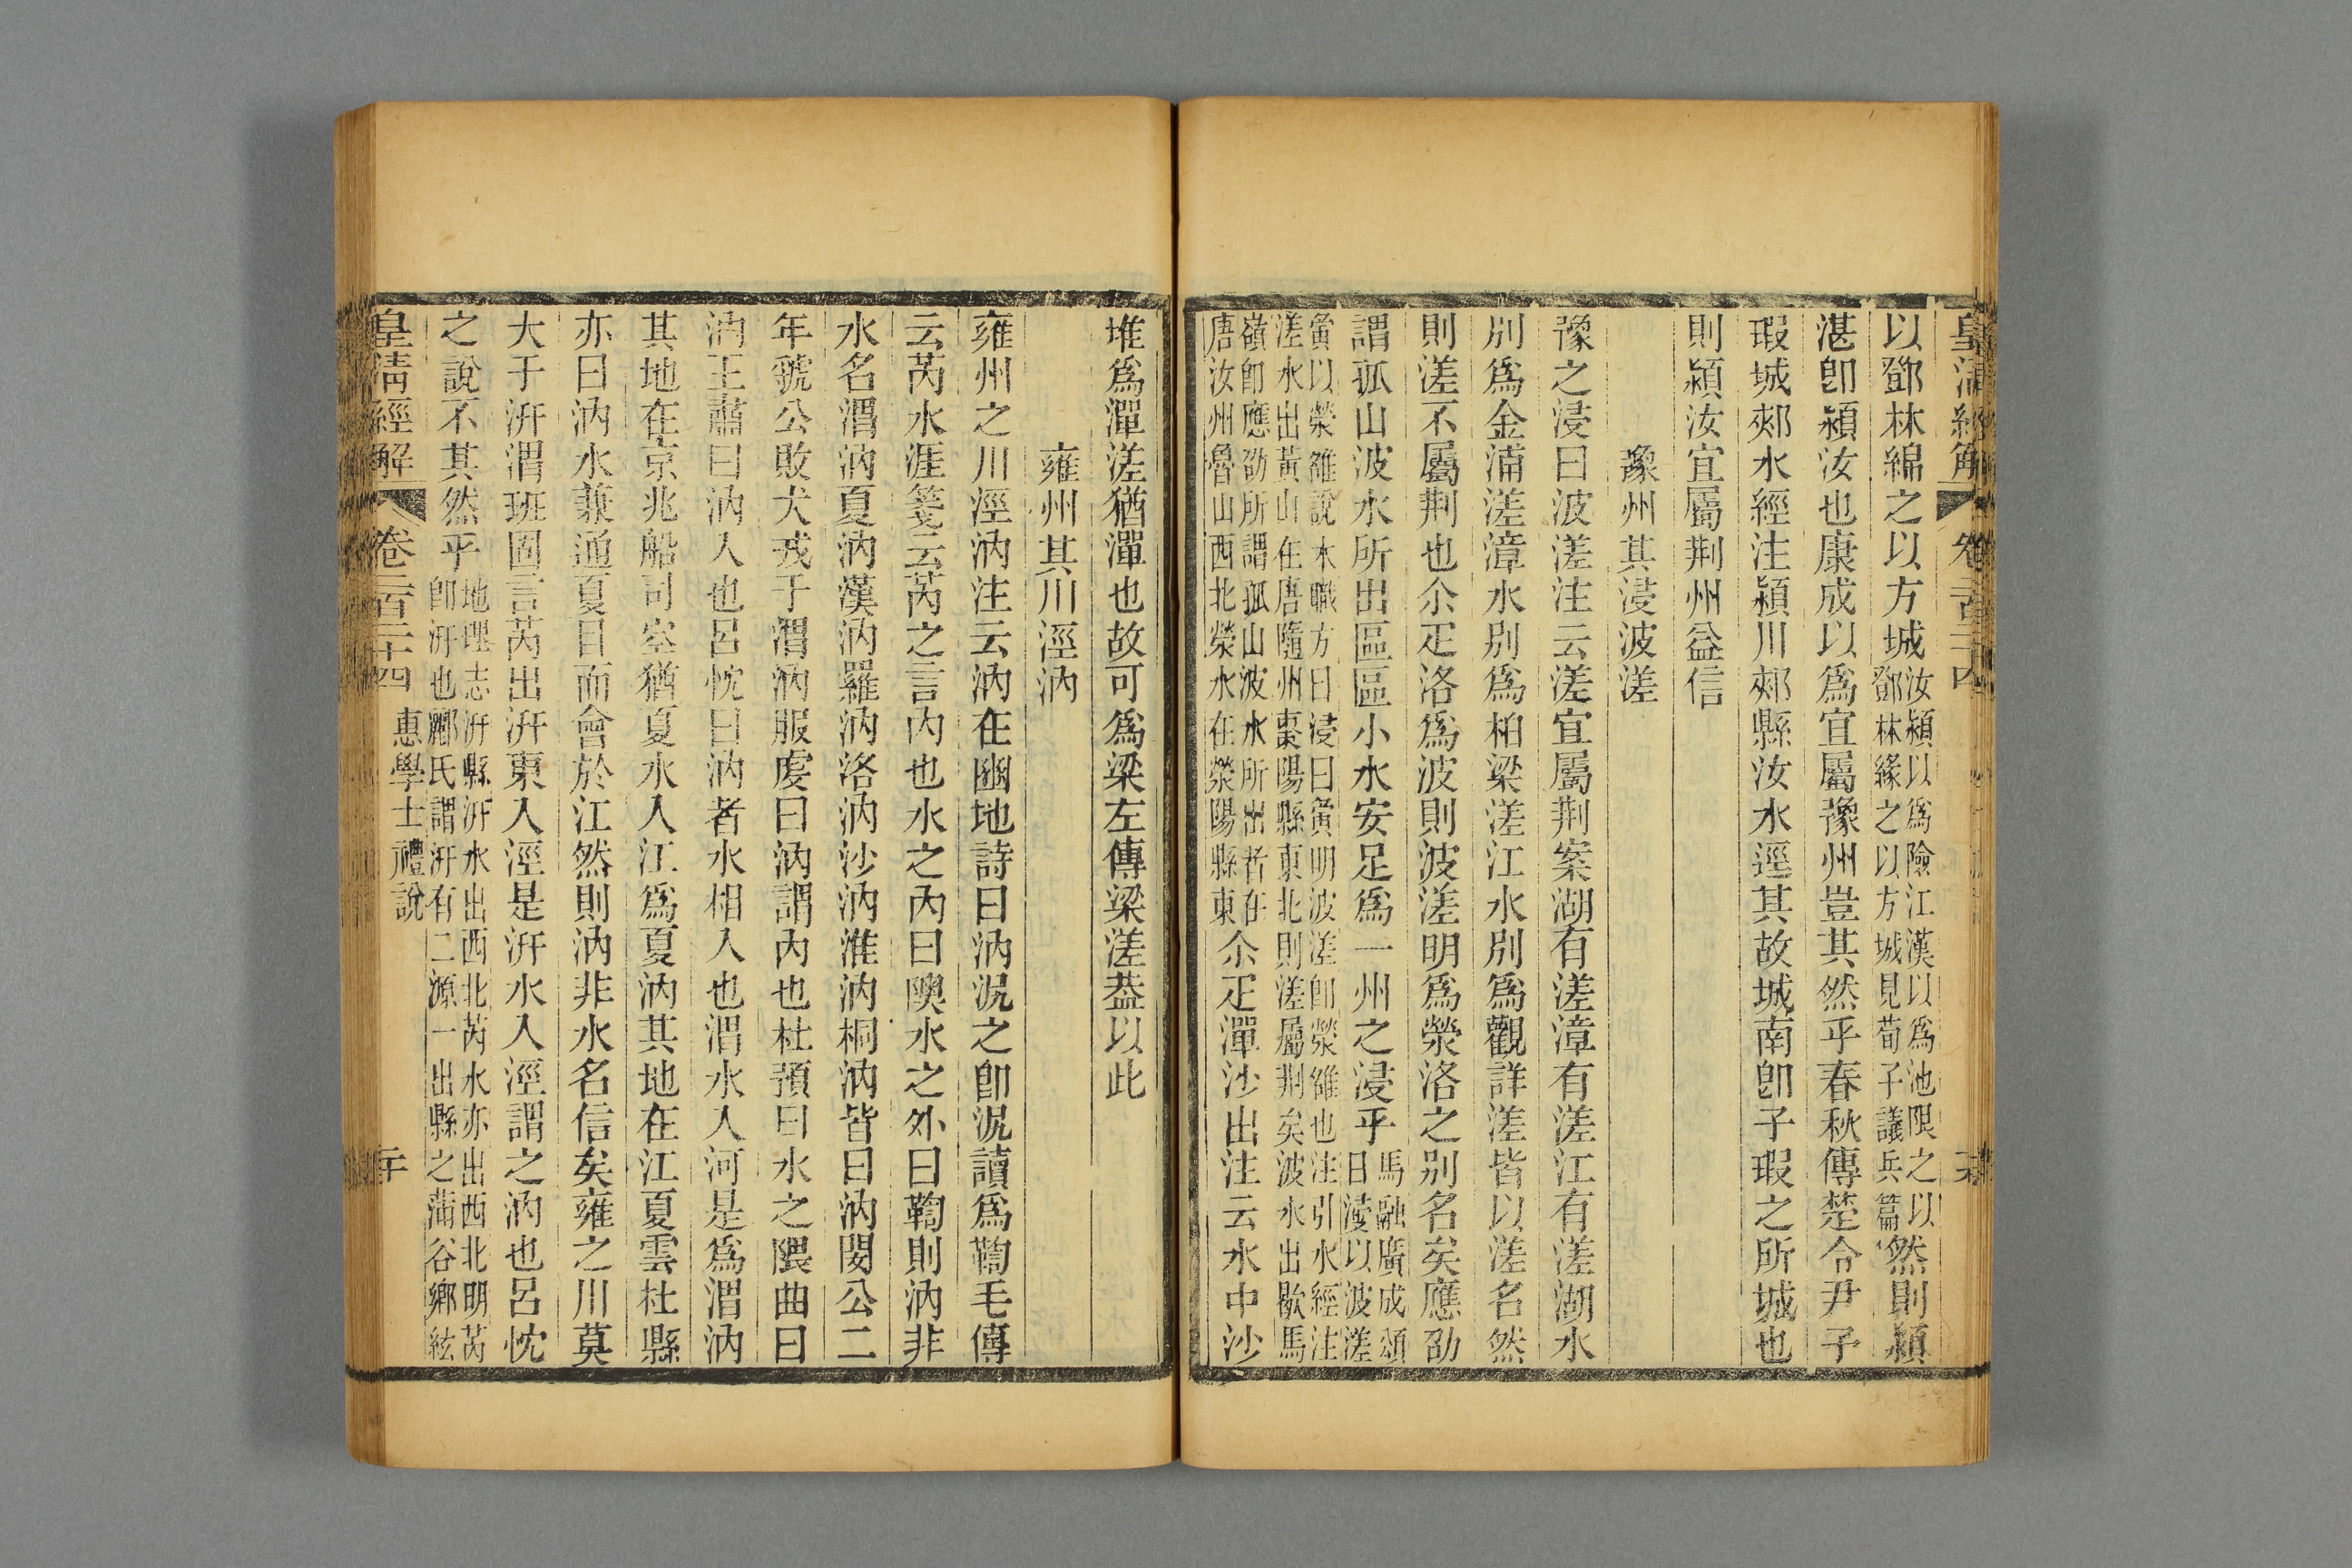 皇清經解 卷二百二十四
以鄧林綿之以方城汝潁以爲險江漢以爲池限之以鄧林緣之以方城見荀子議兵篇然則潁
湛卽潁汝也康成以爲宜屬豫州豈其然乎春秋傳楚令尹子
瑕城郟水經注潁川郟縣汝水逕其故城南卽子瑕之所城也
則潁汝宜屬荆州益信
豫州其浸波溠
豫之浸曰波溠注云溠宜屬荆案湖有溠漳有溠江有溠湖水
別爲金浦溠漳水別爲柏梁溠江水別爲觀詳溠皆以溠名然
則溠不屬荆也尒疋洛爲波則波溠明爲滎洛之別名矣應劭
謂孤山波水所出區區小水安足爲一州之浸乎馬融廣成頌曰浸以波溠
黃以滎雒說水職方曰浸曰黃明波溠卽滎雒也注引水經注溠水出黃山在唐隨州棗陽縣東北則溠屬荆矣波水出歇馬
嶺卽應劭所謂孤山波水所出者在唐汝州魯山西北滎水在滎陽縣東尒疋潬沙出注云水中沙
堆爲潬溠猶潬也故可爲梁左傳梁溠葢以此
雍州其川涇汭
雍州之川涇汭注云汭在豳地詩曰汭泥之卽泥讀爲鞫毛傳
云芮水涯箋云芮之言內也水之內曰隩水之外曰鞫則汭非
水名渭汭夏汭漢汭羅汭洛汭沙汭淮汭桐汭皆曰汭閔公二
年虢公敗犬戎于渭汭服虔曰汭謂內也杜預曰水之隈曲曰
汭王肅曰汭入也呂忱曰汭者水相入也渭水入河是爲渭汭
其地在京兆船司空猶夏水入江爲夏汭其地在江夏雲杜縣
亦曰汭水兼通夏目而會於江然則汭非水名信矣雍之川莫
大于汧渭班固言芮出汧東入涇是汧水入涇謂之汭也呂忱
之說不其然乎地理志汧縣汧水出西北芮水亦出西北明芮卽汧也酈氏謂汧有二源一出縣之蒲谷鄉絃
皇清經解 卷二百二十四 惠學士禮說 二十